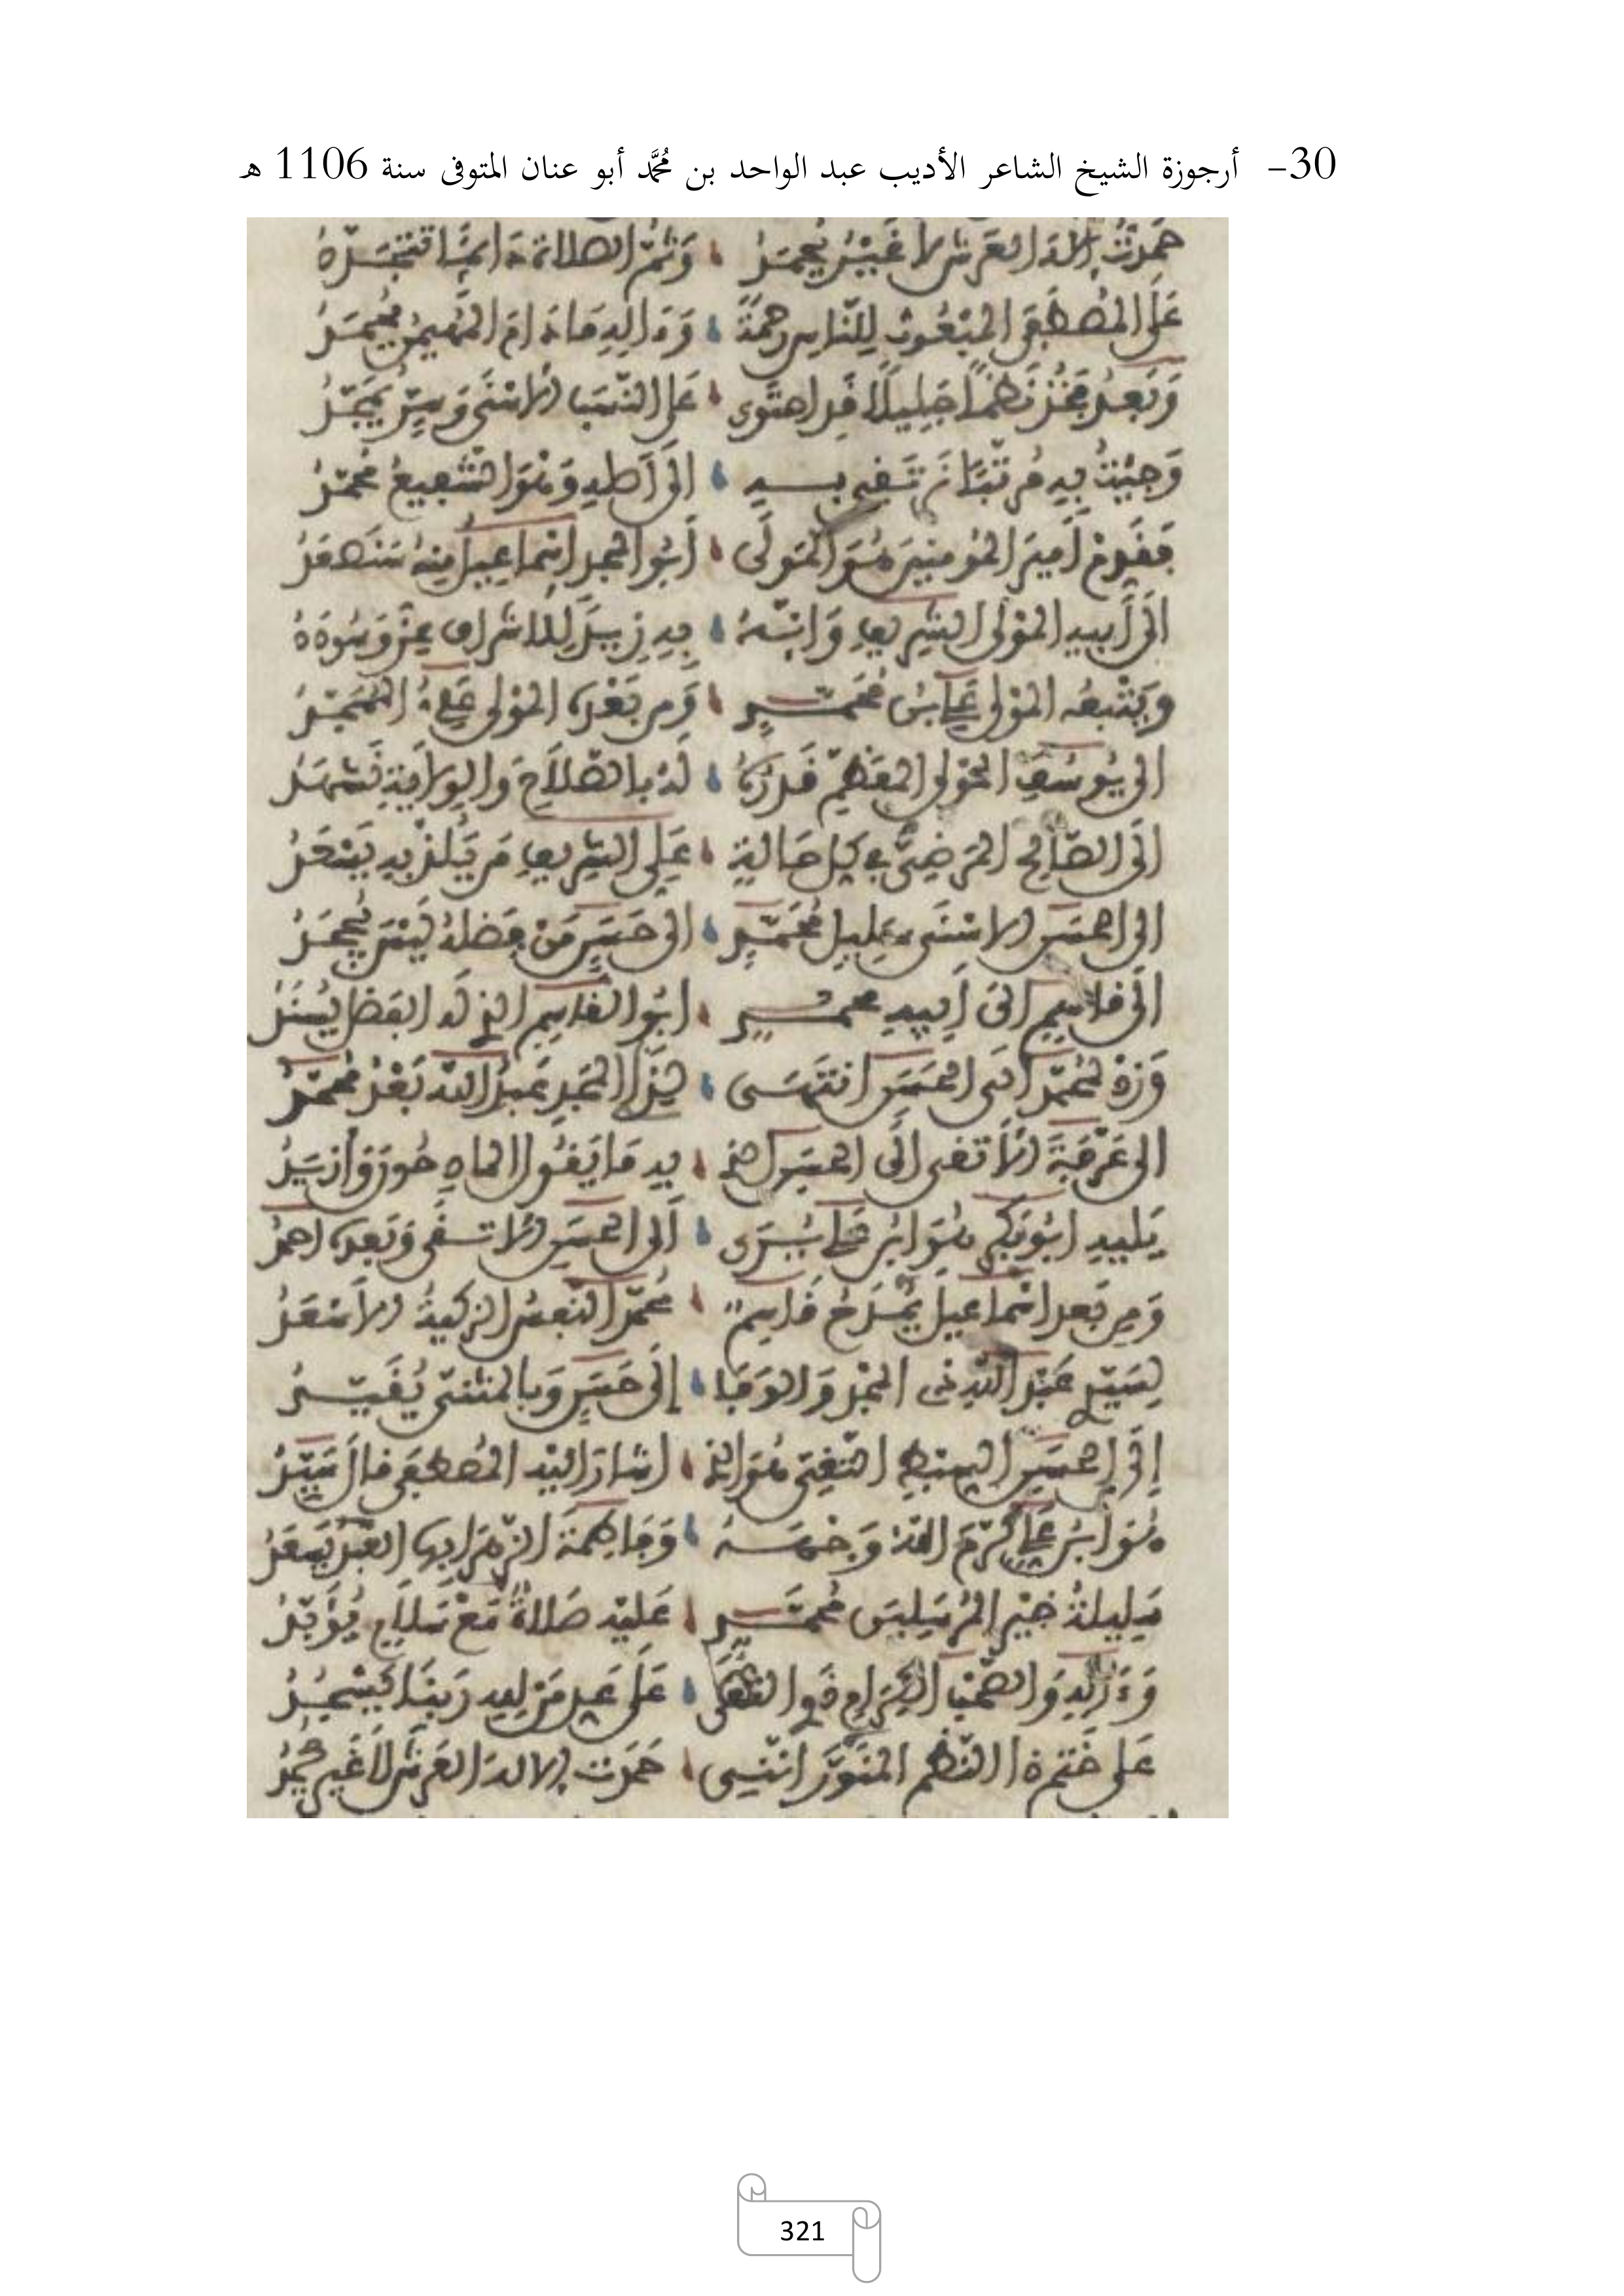 30- أرجوزة الشيخ الشاعر الأديب عبد الواحد بن محمَّد أبو عنان المتوفى سنة 1106 هـ
حَمِدْتُ إلاه العَرش لا غَيْرُ يُحمَدُ وَثمّ الصلاة دائما تتجدده
عَلَى المُصطَفى المَبْعُوث لِلنّاس رحمَةً وءاله ما دام المُهيمن يُحمَدُ
وَبَعدُ فخُذ نَظمًا جَلِيلًا قد احتَوى على النّسَب الاسْنَى وَسِرّ يُمَجّدُ
وَجِئتُ به مُرَتّبًا تَرتَقِي بــه الى أصله وَهْوَ الشّفيعُ مُحَمّدُ
فَقَدِّمْ أميرَ المُومنِينَ هُوَ المَولَى أبُو المجد إسماعيل مِنهُ سَنَصعَدُ
الى أبيه المَوْلى الشريف وَانّهُ به زيدَ لِلاشراف عِزّ وَسُودَدُ
وَيَتْبعه المَوْلى عَلي بنُ مُحَمّدٍ وَمِن بَعْدِه المَوْلى عَلِيّ المُمَجّدُ
الى يُوسُف المَوْلى المعَظّم قَدرُهُ لَهُ بالصّلَاح والوِلايَةِ نَشهَدُ
الى الصّالِح المَرضِيّ في كل حَالةٍ عَلِي الشريف مَن يَلُذْ به يَسْعَدُ
الى الحسَن الاسْنَى سَلِيل مُحَمّدٍ الى حَسَنٍ مَنْ فضلهُ لَيْسَ يُجحَدُ
الى قاسِمٍ الى أبيه محمــدٍ ابُو القاسِم الذي له الفضل يُسنَدُ
وَزِدْ لمُحَمّد الى الحسَن انتَهَى لِذَا المَجد عَبدُ الله بَعْدُ محمّدُ
الى عَرَفَةَ الاتقى الى الحسَن الذي به مَا يَقُولُ المَاهِر وازيَدُ
يَليه ابُو بَكر هُوَ ابنُ عَلي يُرَى الى الحسَن الاتقى وَبَعده احمدُ
وَمِن بَعد اسْماعيل يُمْدَحُ قَاسِمٌ مُحَمّد النّفسُ الزكيةُ الاسْعَدُ
لِسَيّد عَبْد الله ذي المَجْد وَالوَفَا إلَى حَسَنٍ وَبالمثنى يُقَيّــدُ
إلَى الحسَن السبط التّقِيّ هُوَ الذي اشارَ اليْه المُصطفى قال سَيّدُ
هُوَ ابنُ عَلي كَرّمَ الله وَجْهَــهُ وَفاطِمَةَ الزّهرَا بها العَبْدُ يَسعَدُ
سَلِيلةُ خَيْر المُرسَلِينَ مُحَمّــدٍ عَليْه صَلاةٌ مَعْ سَلامٍ يُؤَبّدُ
وَءَالِه وَالصّحْبِ الكِرَامِ ذَوِي التقى عَلَى عَبد مَن لِعِيد رَبنَا يَسْجُدُ
على خَتم ذا النّظم المُنَوَّر انّنِي حَمَدْت إلاه العَرش لَا غَير يُحمَدُ
321